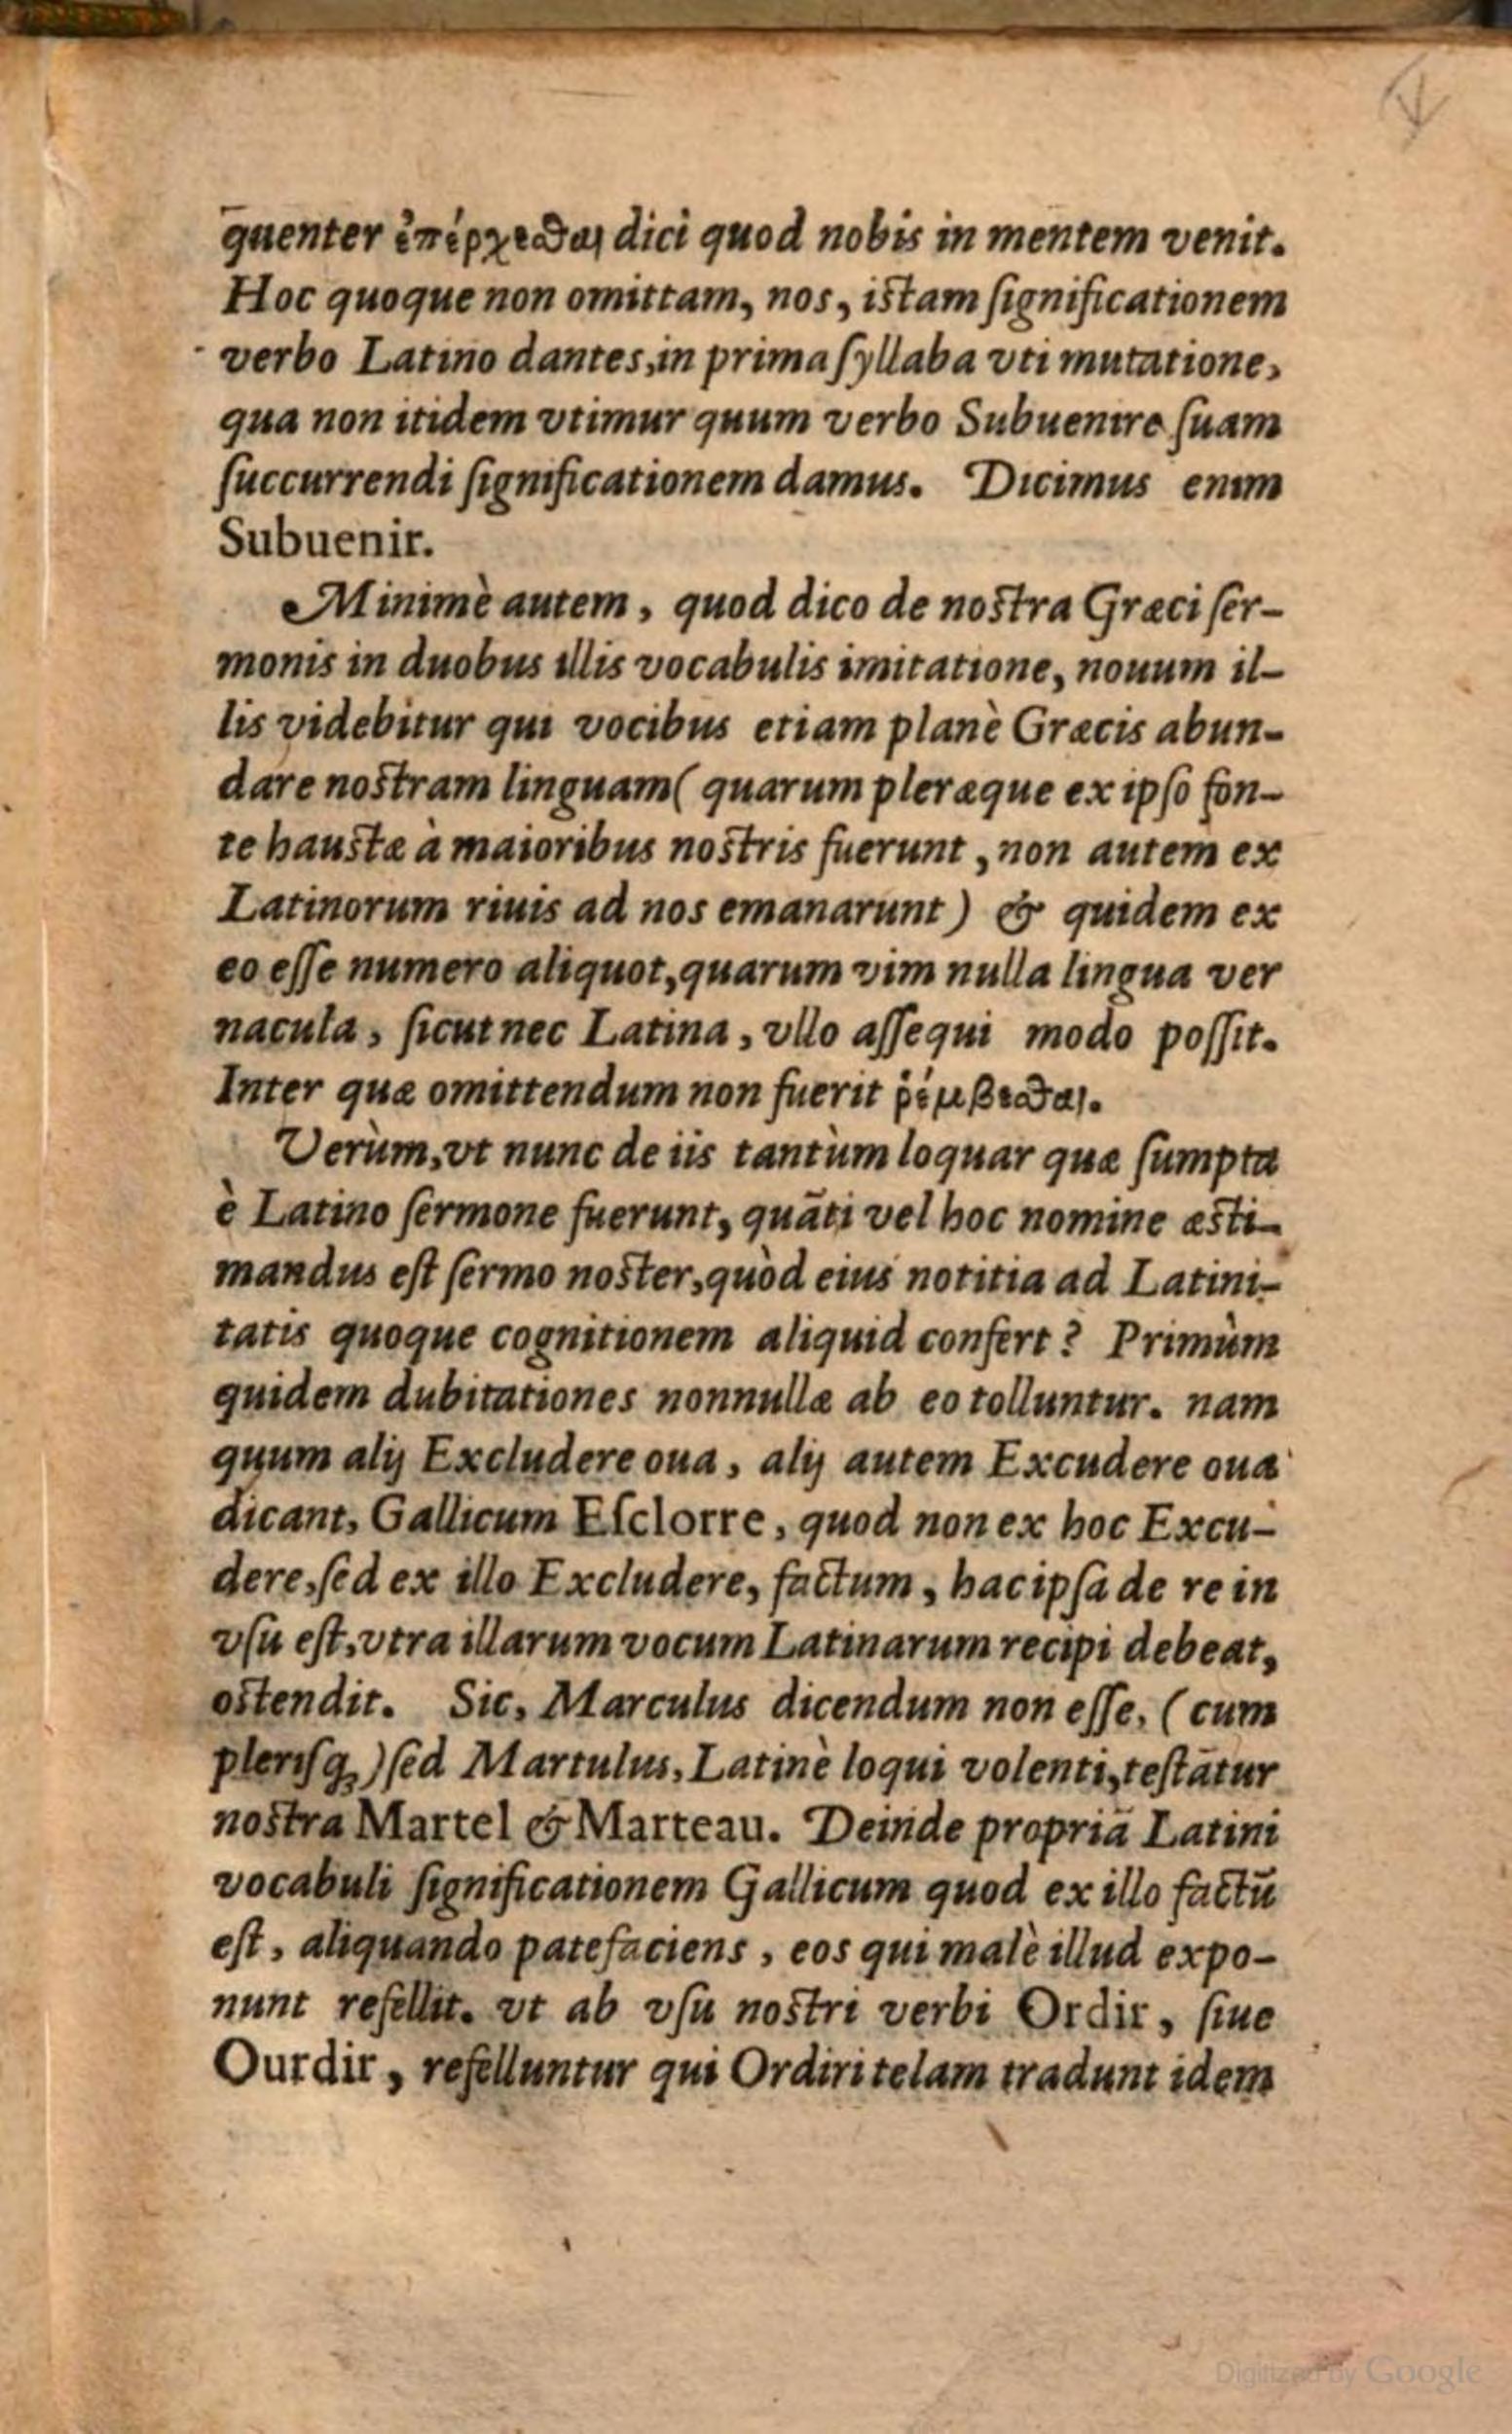 q̄uenter ἐπέρχεσθαι dici quod nobis in mentem venit.
Hoc quoque non omittam, nos, istam ſignificationem
verbo Latino dantes, in prima ſyllaba vti mutatione,
qua non itidem vtimur quum verbo Subuenire ſuam
ſuccurrendi ſignificationem damus. Dicimus enim
Subuenir.
Minimè autem, quod dico de nostra Græci ſer-
monis in duobus illis vocabulis imitatione, nouum il-
lis videbitur qui vocibus etiam planè Græcis abun-
dare nostram linguam (quarum pleræque ex ipſo fon-
te haustæ à maioribus nostris fuerunt, non autem ex
Latinorum riuis ad nos emanarunt) & quidem ex
eo eſſe numero aliquot, quarum vim nulla lingua ver
nacula, ſicut nec Latina, vllo aſſequi modo poſſit.
Inter quæ omittendum non fuerit ῥέμβεσθαι.
Verùm, vt nunc de iis tantùm loquar quæ ſumpta
è Latino ſermone fuerunt, quāti vel hoc nomine æsti-
mandus eſt ſermo noster, quòd eius notitia ad Latini-
tatis quoque cognitionem aliquid confert? Primùm
quidem dubitationes nonnullæ ab eo tolluntur. nam
quum alij Excludere oua, alij autem Excudere oua
dicant, Gallicum Eſclorre, quod non ex hoc Excu-
dere, ſed ex illo Excludere, factum, hac ipſa de re in
vſu eſt, vtra illarum vocum Latinarum recipi debeat,
ostendit. Sic, Marculus dicendum non eſſe, (cum
pleriſq;) ſed Martulus, Latinè loqui volenti, teſtātur
nostra Martel & Marteau. Deinde propriā Latini
vocabuli ſignificationem Gallicum quod ex illo factū
eſt, aliquando patefaciens, eos qui malè illud expo-
nunt refellit. vt ab vſu nostri verbi Ordir, ſiue
Ourdir, refelluntur qui Ordiri telam tradunt idem
Digitized by Google